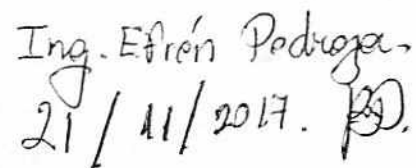 Ing. Efrén Pedroza.
21/11/2017.